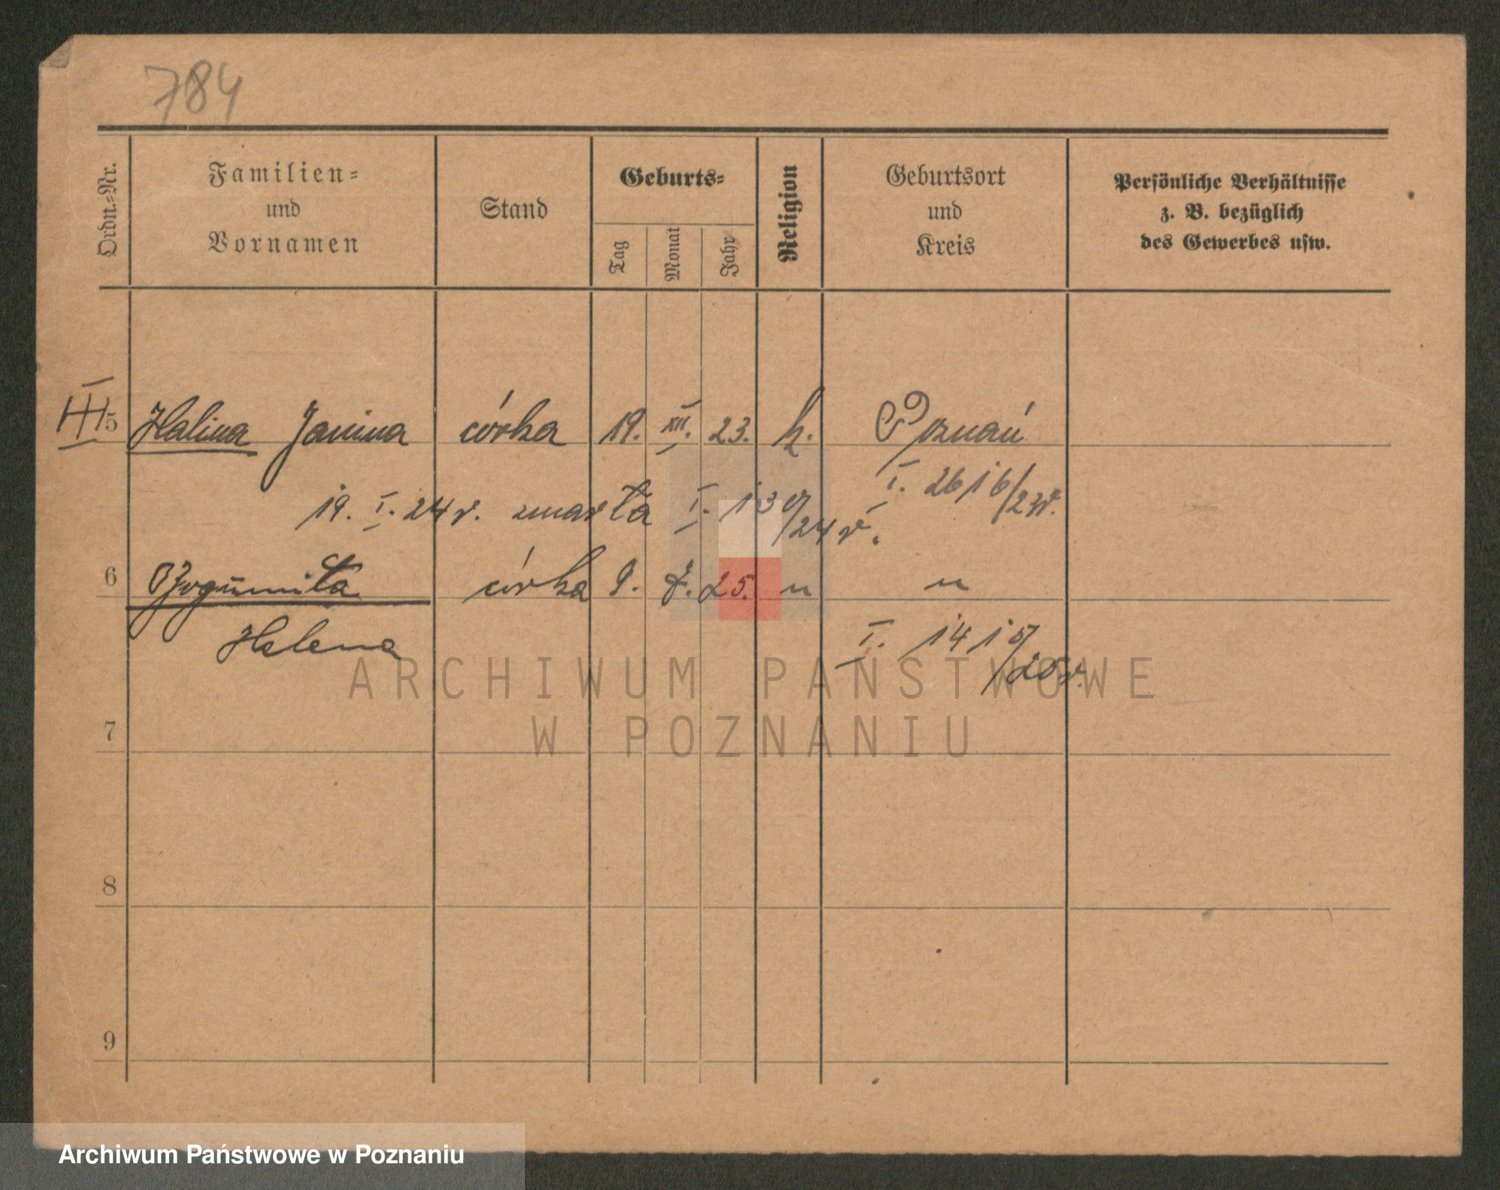 784
Ordn.-Nr.
Familien-
und
Vornamen
Stand
Geburts-
Tag
Monat
Jahr
Religion
Geburtsort
und
Kreis
Persönliche Verhältnisse
z. B. bezüglich
des Gewerbes usw.
III 5 Halina Janina córka 19. XII. 23. k. Poznań
19. I. 24 r. zmarła I. 130/24 r. I. 2616/23 r.
6 Bogumiła córka 9. 2. 25. " "
Helena I. 1415/25 r.
ARCHIWUM PAŃSTWOWE
W POZNANIU
7
8
9
Archiwum Państwowe w Poznaniu